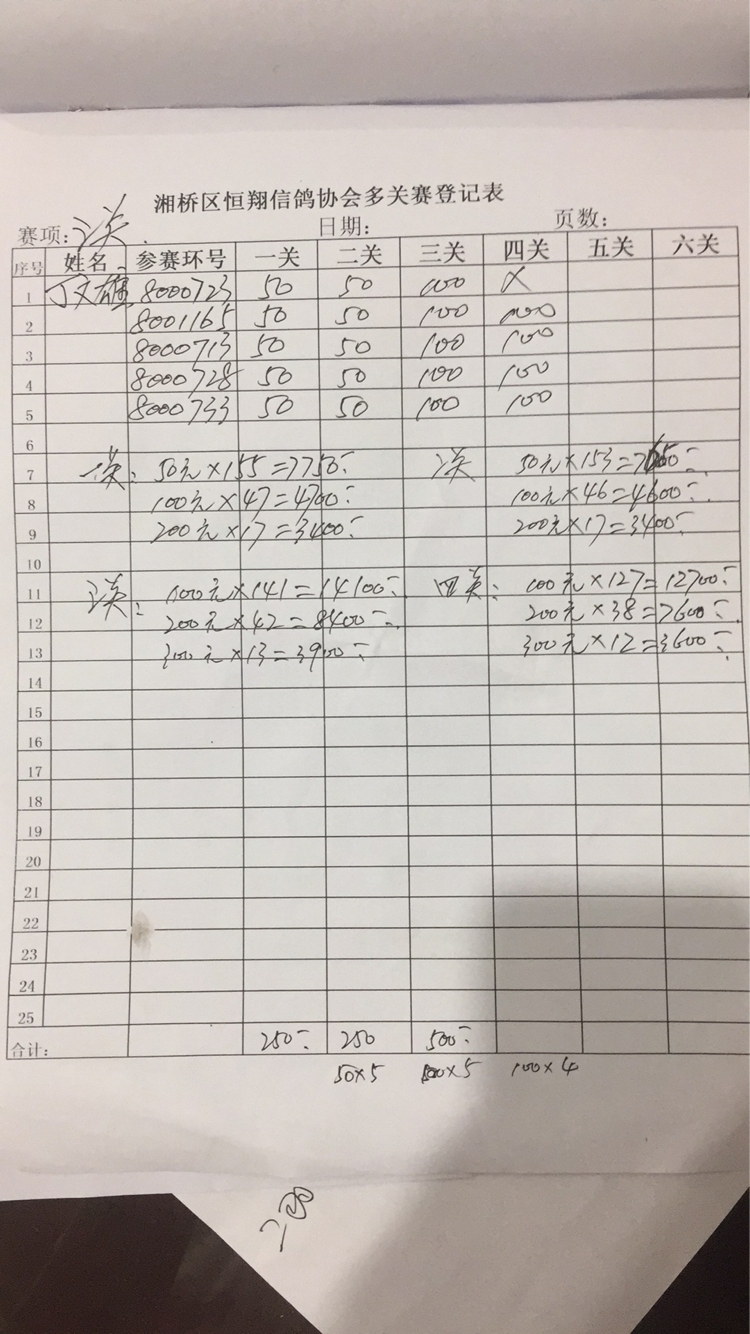 湘桥区恒翔信鸽协会多关赛登记表
赛项: 三关 日期: 页数:
序号 姓名 参赛环号 一关 二关 三关 四关 五关 六关
1 丁文雄 8000723 50 50 100 X
2 8001165 50 50 100 100
3 8000713 50 50 100 100
4 8000728 50 50 100 100
5 8000733 50 50 100 100
6
7 一关: 50元×155=7750 二关 50元×153=7650
8 100元×47=4700 100元×46=4600
9 200元×17=3400 200元×17=3400
10
11 三关: 100元×141=14100 四关: 100元×127=12700
12 200元×42=8400 200元×38=7600
13 300元×13=3900 300元×12=3600
14
15
16
17
18
19
20
21
22
23
24
25
合计: 250 250 500
50×5 100×5 100×4